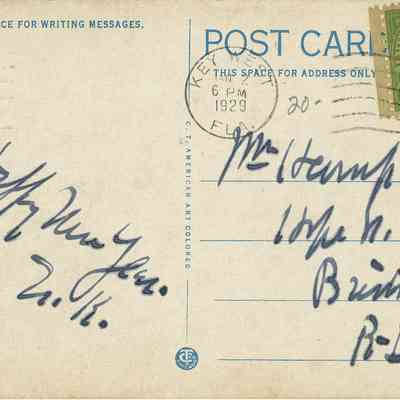 CE FOR WRITING MESSAGES.
POST CARD
THIS SPACE FOR ADDRESS ONLY
KEY WEST
JAN 2
6 PM
1929
FLA.
20-
C. T. AMERICAN ART COLORED
Happy New Year.
Hope
R-